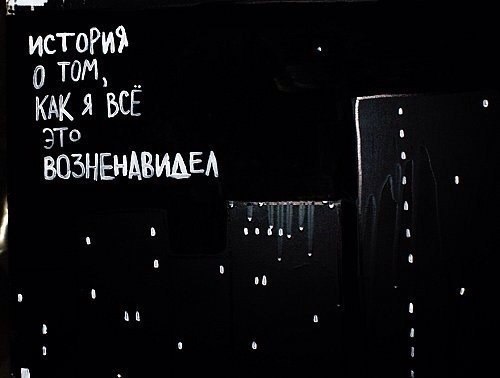 ИСТОРИЯ
О ТОМ,
КАК Я ВСЁ
ЭТО
ВОЗНЕНАВИДЕЛ